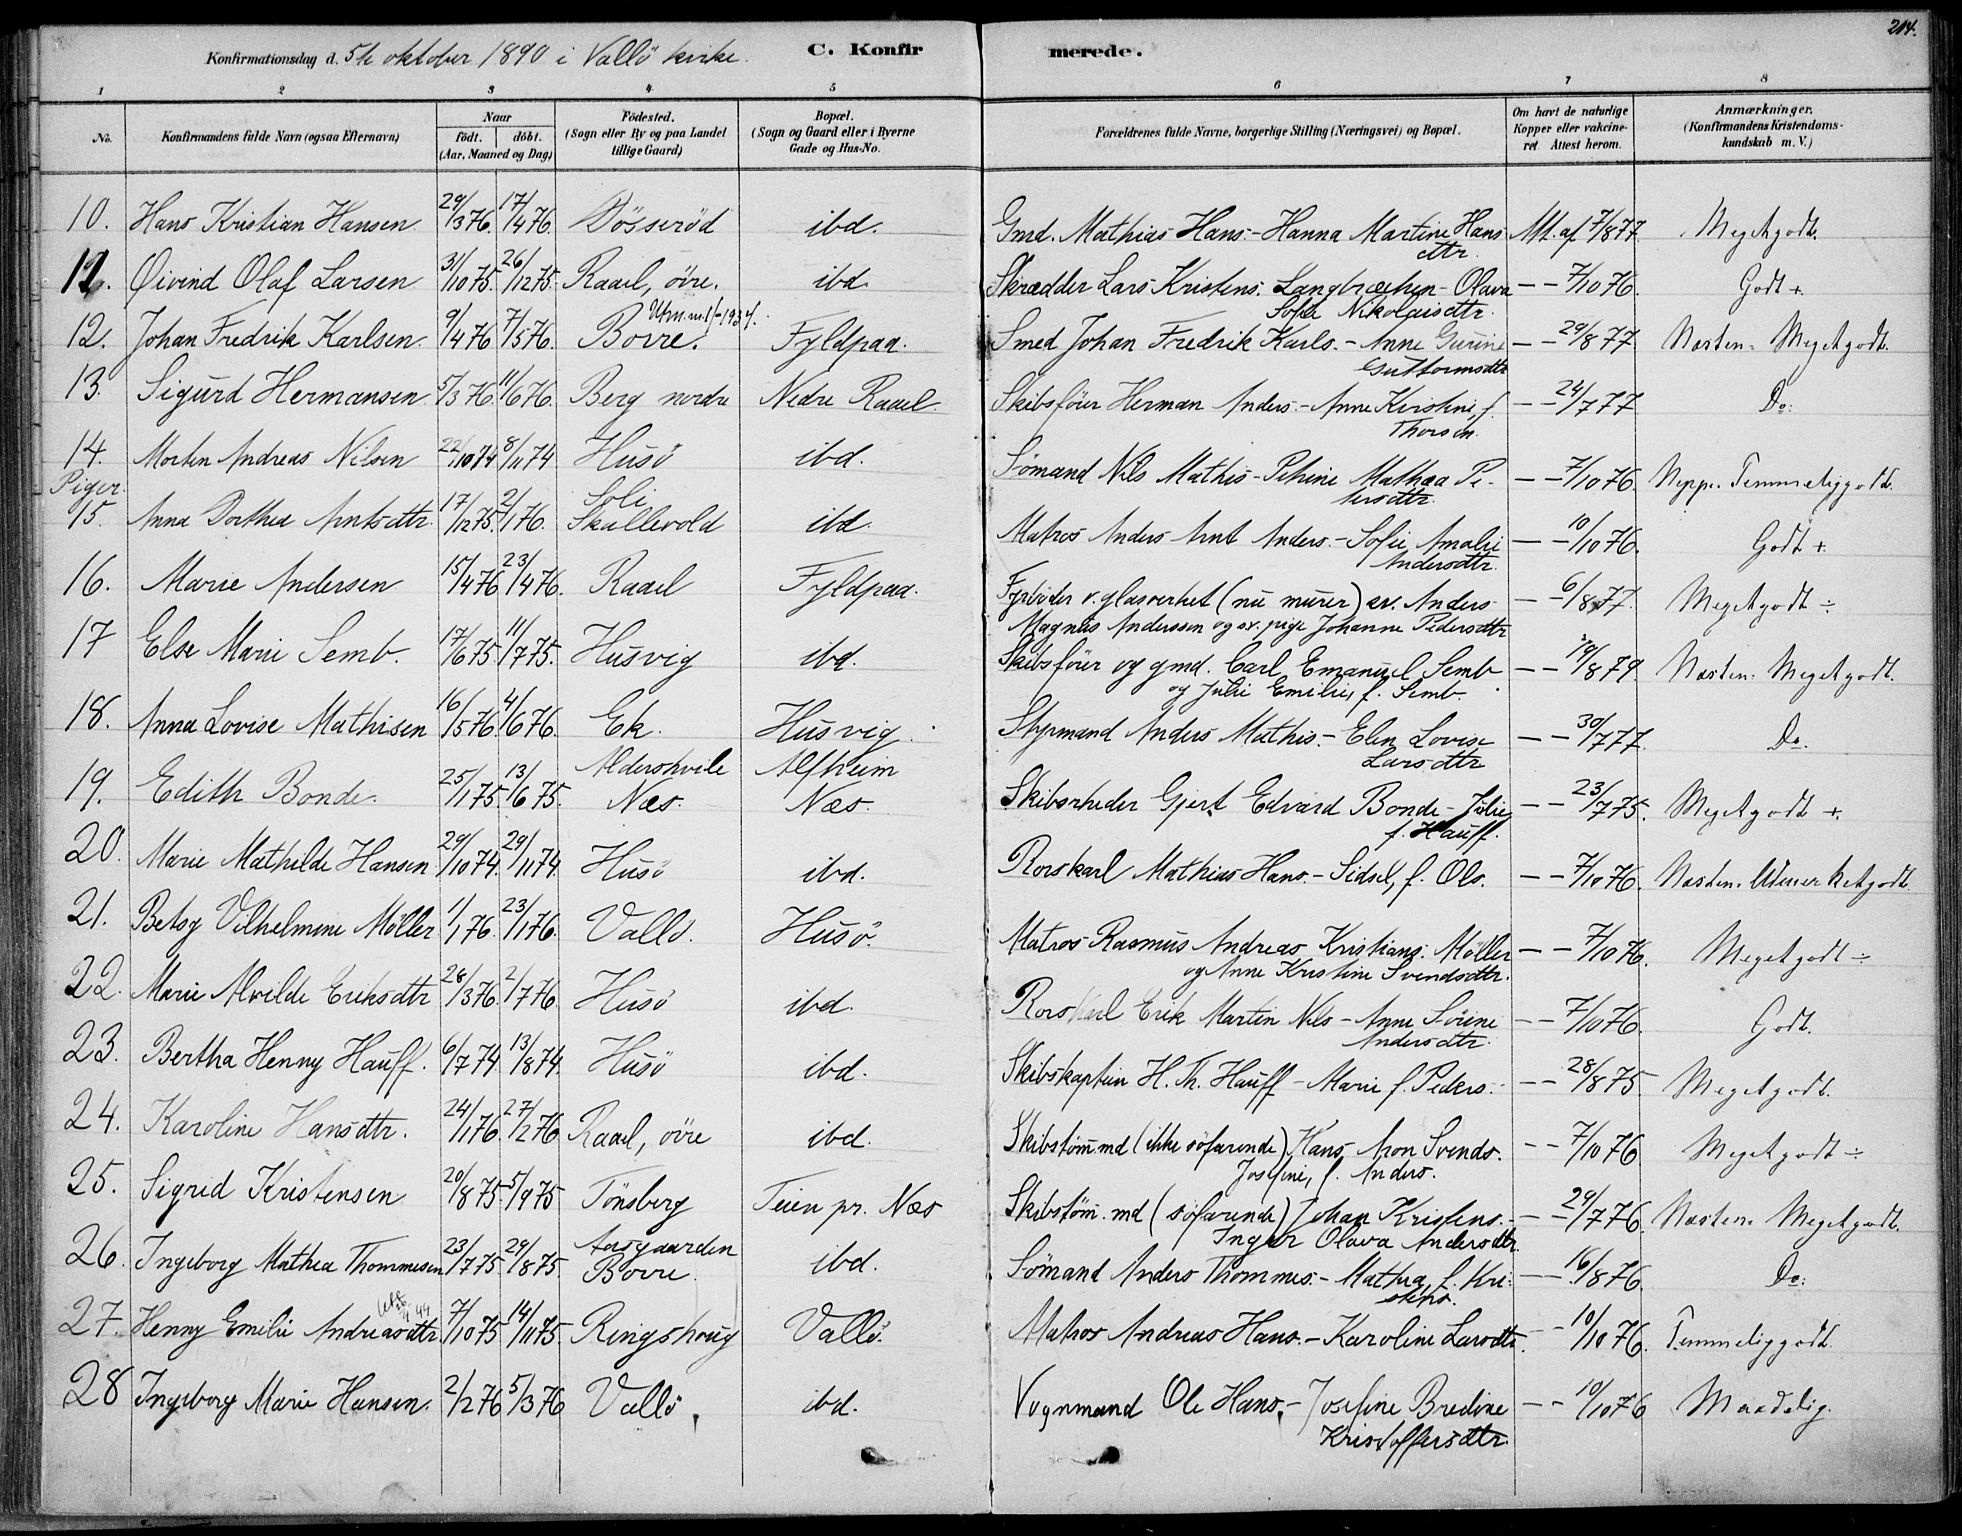 214.
Konfirmationsdag d. 5te oktober 1890 i Vallö kirke. C. Konfirmerede.
1 2 3 4 5 6 7 8
No. Konfirmandens fulde Navn (ogsaa Efternavn) Naar født. døbt. (Aar, Maaned og Dag) Fødested. (Sogn eller By og paa Landet tillige Gaard) Bopæl. (Sogn og Gaard eller i Byerne Gade og Hus-No. Forældrenes fulde Navne, borgerlige Stilling (Næringsvei) og Bopæl. Om havt de naturlige Kopper eller vakcineret. Attest herom. Anmærkninger. (Konfirmandens Kristendomskundskab m. V.)
10. Hans Kristian Hansen 29/3 76. 17/4 76. Døsserød ibd. Gmd. Mathias Hans.- Hanna Martine Hans Att. af 7/8 77 Megetgodt.
dttr.
11. Øivind Olaf Larsen 31/10 75. 26/12 75. Raael, øvre. ibd. Skrædder Lars Kristens. Langbrækken - Olava - - 7/10 76. Godt +
Sofie Nikolaisdtr.
12. Johan Fredrik Karlsen. 9/4 76 7/5 76. Bovre. Fyldpaa. Smed Johan Fredrik Karls. - Anne Gurine - - 29/8 77 Næsten Megetgodt.
Guttormsdtr
13. Sigurd Hermansen 5/3 76. 11/6 76. Berg nordre Nedre Raael. Skibsfører Herman Anders.- Anne Kristine, f. - - 24/7 77 Do:
Thorsen.
14. Morten Andreas Nilsen 22/10 74 8/11 74 Husö ibd. Sömand Nils Mathis - Petrine Mathea Pe- - - 7/10 76. Neppe Temmeliggodt.
tersdtr.
Piger.
Soli
15. Anna Dorthea Arntsdtr. 17/12 75. 2/1 76. Skallevold ibd. Matros Anders Arnt Anders. - Sofie Amalie - - 10/10 76. Godt +.
Andersdtr.
16. Marie Andersen 15/4 76 23/4 76. Raael Fyldpaa. Fyrbøder v. glasverket (nu murer) sv. Anders - - 6/8 77. Megetgodt ÷
Magnus Anderssen og sv. pige Johanne Pedersdtr
17 Else Marie Semb. 17/6 75 11/7 75. Husvig ibd. Skibsfører og gmd. Carl Emanuel Semb - - 29/8 79 Næsten Megetgodt.
og Julie Emilie, f. Semb.
18. Anna Lovise Mathisen 16/5 76 4/6 76. Ek. Husvig Styrmand Anders Mathis. - Elen Lovise - - 30/7 77. Do.
Larsdtr
Aldershvile Alfheim
19. Edith Bonde. 25/1 75 13/6 75. Næs. Næs. Skibsrheder Gjert Edvard Bonde - Julie - - 23/7 75. Megetgodt +.
f. Hauff.
20. Marie Mathilde Hansen 29/10 74. 29/11 74. Husö ibd. Rorskarl Mathias Hans. - Sidsel, f. Ols. - - 7/10 76. Næsten Utmerketgodt.
21. Betsy Vilhelmine Möller 1/1 76. 23/1 76. Vallö. Husö. Matros Rasmus Andreas Kristians. Möller - - 7/10 76. Megetgodt ÷
og Anne Kristine Svendsdtr.
22. Marie Alvilde Eriksdtr 28/3 76. 2/7 76. Husö ibd. Rorskarl Erik Martin Nils - Anne Sörine - - 7/10 76. Godt.
Andersdtr.
23. Bertha Henny Hauff. 6/7 74 13/8 74 Husö ibd. Skibskaptein H. Th. Hauff - Marie f. Peders. - - 28/8 75 Megetgodt.
24. Karoline Hansdtr. 24/1 76. 27/2 76 Raael, øvre ibd. Skibstøm.md (ikke söfarende) Hans Aron Svends. - - 7/10 76 Megetgodt ÷
Josefine, f. Anders.
25. Sigrid Kristensen 20/8 75. 5/9 75 Tönsberg Teien pr. Næs Skibstøm.md (söfarende) Johan Kristens. - - 29/7 76. Næsten Megetgodt.
Inger Olava Andersdtr.
Aasgaarden
26. Ingeborg Mathea Thommesen 23/7 75. 29/8 75 Bovre ibd. Sömand Anders Thommes. - Mathea, f. Kri- - - 16/8 76. Do:
stens.
27. Henny Emilie Andreasdtr 7/10 75 14/11 75. Ringshoug Vallö. Matros Andreas Hans. - Karoline Larsdtr. - 10/10 76. Temmeliggodt.
28 Ingeborg Marie Hansen. 2/2 76 5/3 76 Vallö ibd. Vognmand Ole Hans. - Josefine Bredine - - 10/10 76 Maadelig.
Kristoffersdtr.